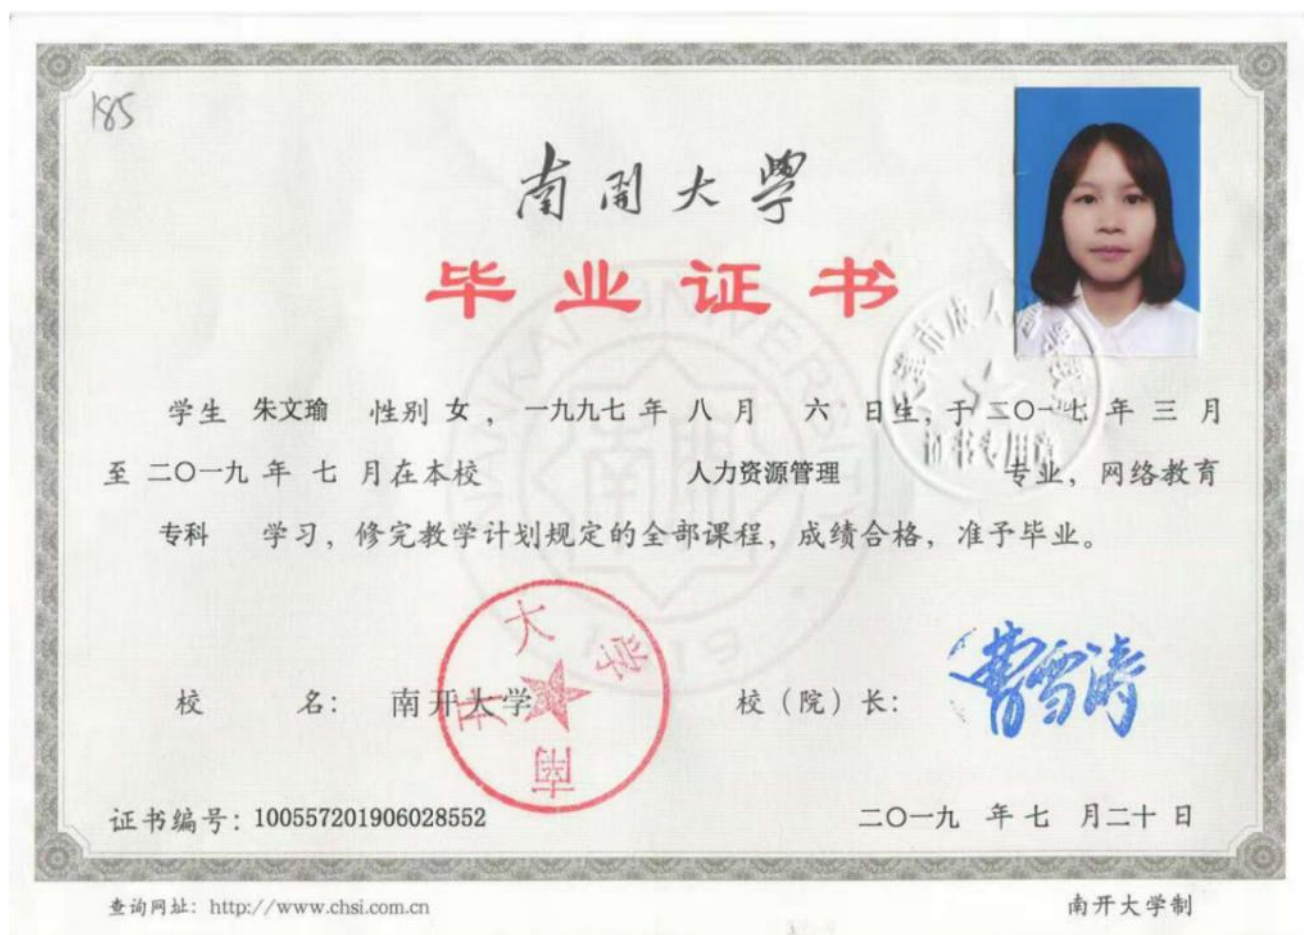 185
南開大學
毕业证书
学生 朱文瑜 性别 女，一九九七 年 八 月 六 日生，于 二〇一七 年 三 月
至 二〇一九 年 七 月在本校 人力资源管理 专业，网络教育
专科 学习，修完教学计划规定的全部课程，成绩合格，准予毕业。
NANKAI UNIVERSITY
南開
1919
南开大学
证书专用章
校 名：南开大学 校（院）长：曹雪涛
证书编号：100557201906028552 二〇一九 年 七 月二十 日
查询网址：http://www.chsi.com.cn 南开大学制